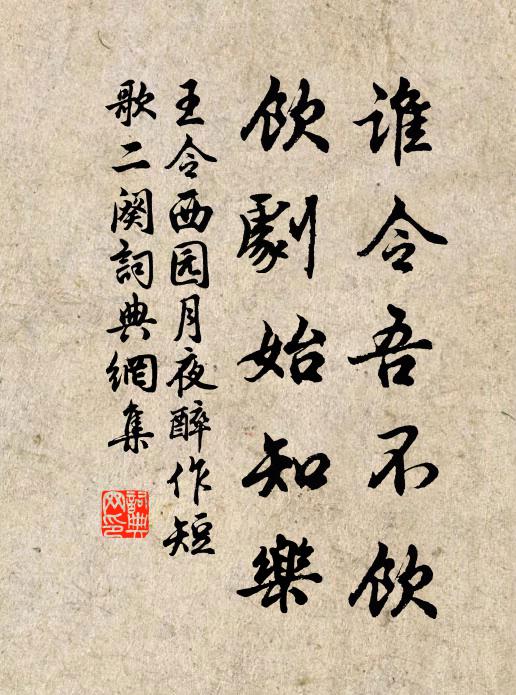 谁令吾不饮
饮剧始知樂
王令西园月夜醉作短
歌二阕詞典網集
詞典网印